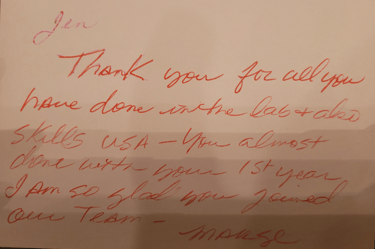 Jen
Thank you for all you
have done in the lab + also
Skills USA - You almost
done with your 1st year
I am so glad you joined
our Team -